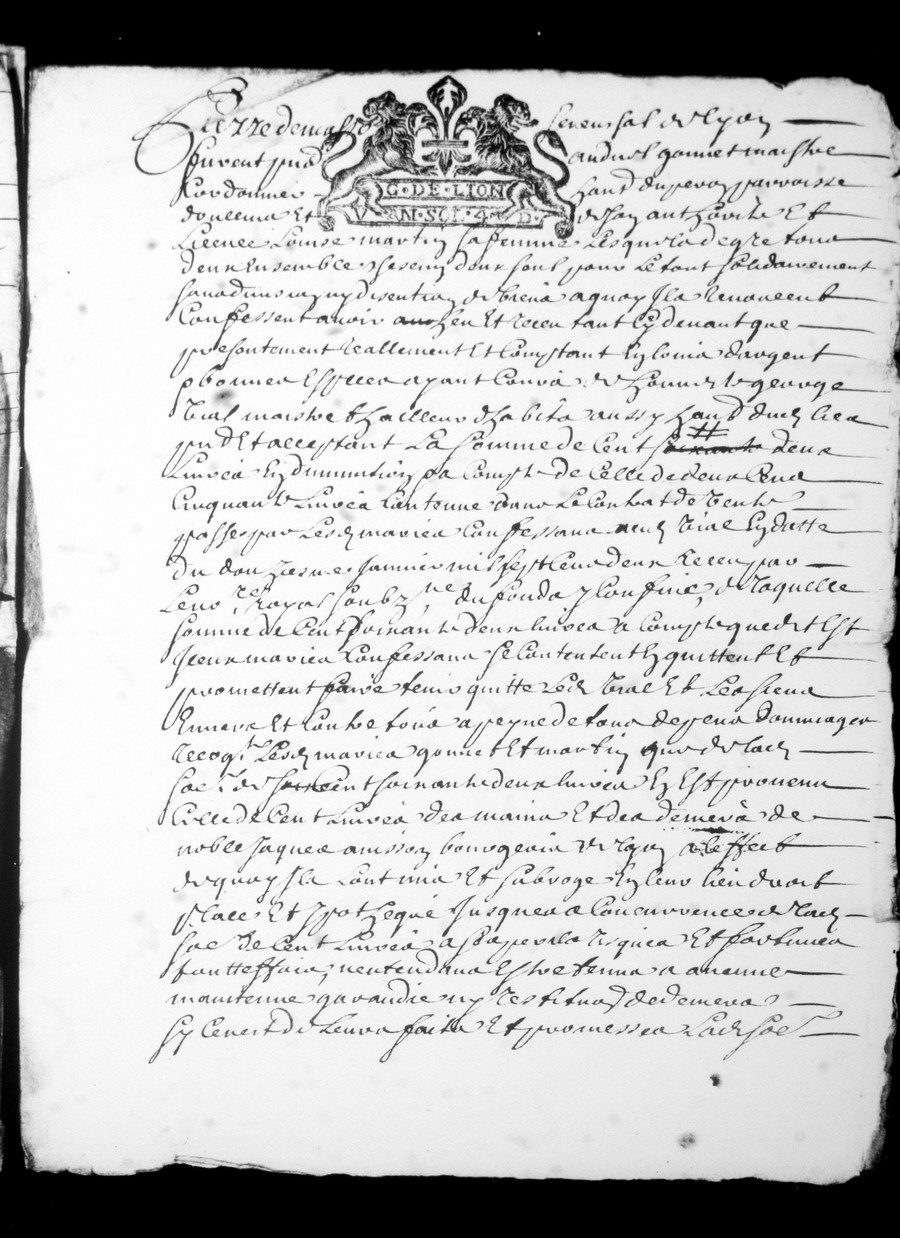 Pierre de masso senenschal de lyon
furent pntz andre gonnet maistre
Cordonnier hault du peron parroisse
G·DE·LION
V N·SOL·4·D·
doullins Et de son authorité Et
Licence Louise martin sa femme Lesquelz de gre tous
deux Ensemble Chescun deux seul pour Le tout solidairement
sans division ny discution de biens a quoy Ilz renoncent
Confessent avoir heu Et receu tant Cy devant que
presentement reallement Et Comptant En louis dargent
& bonnes Especes ayant Cours de honneste george
Vial maistre thailleur dhabits aussy hault dud lieu
pnt Et acceptant La somme de Cent soixante deux
Livres En diminution & a Compte de Celle de deux Cens
Cinquante Livres Contenue dans Le Contrat de vente
passe par Lesd mariés Confessans aud Vial En datte
du douziesme Janvier mil sept Cens deux Receu par
Le nore Royal soubzne du fonds y Confiné, de laquelle
somme de Cent soixante deux livres a Compte que dit Est
Iceux mariés Confessans se Contentent En quittent Et
promettent faire tenir quitte Led Vial Et Les siens
Envers Et Contre tous a peyne de tous despens dommages
recogt Lesd mariés gonnet Et martin que de lad
soe de Cent soixante deux livres En Est provenu
Celle de Cent Livres des mains Et des deniers de
noble Jaques anisson bourgeois de lyon a leffect
de quoy Ilz Lont mis Et subrogé En leur lieu droit
place Et ypotheque Jusques a Concurrence de lad
soe de Cent Livres a ses perils risques Et fortunes
sans tteffois, nentendans Estre tenus a aucune
maintenue garandie ny restitution de deniers
sy Ce nest de Leurs faits Et promesses Lad soe